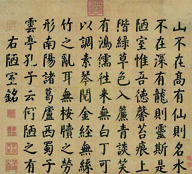 山不在高有仙則名水
不在深有龍則靈斯是
陋室惟吾德馨苔痕上
階綠草色入簾青談笑
有鴻儒往來無白丁可
以調素琴閱金經無絲
竹之亂耳無案牘之勞
形南陽諸葛廬西蜀子
雲亭孔子云何陋之有
右陋室銘